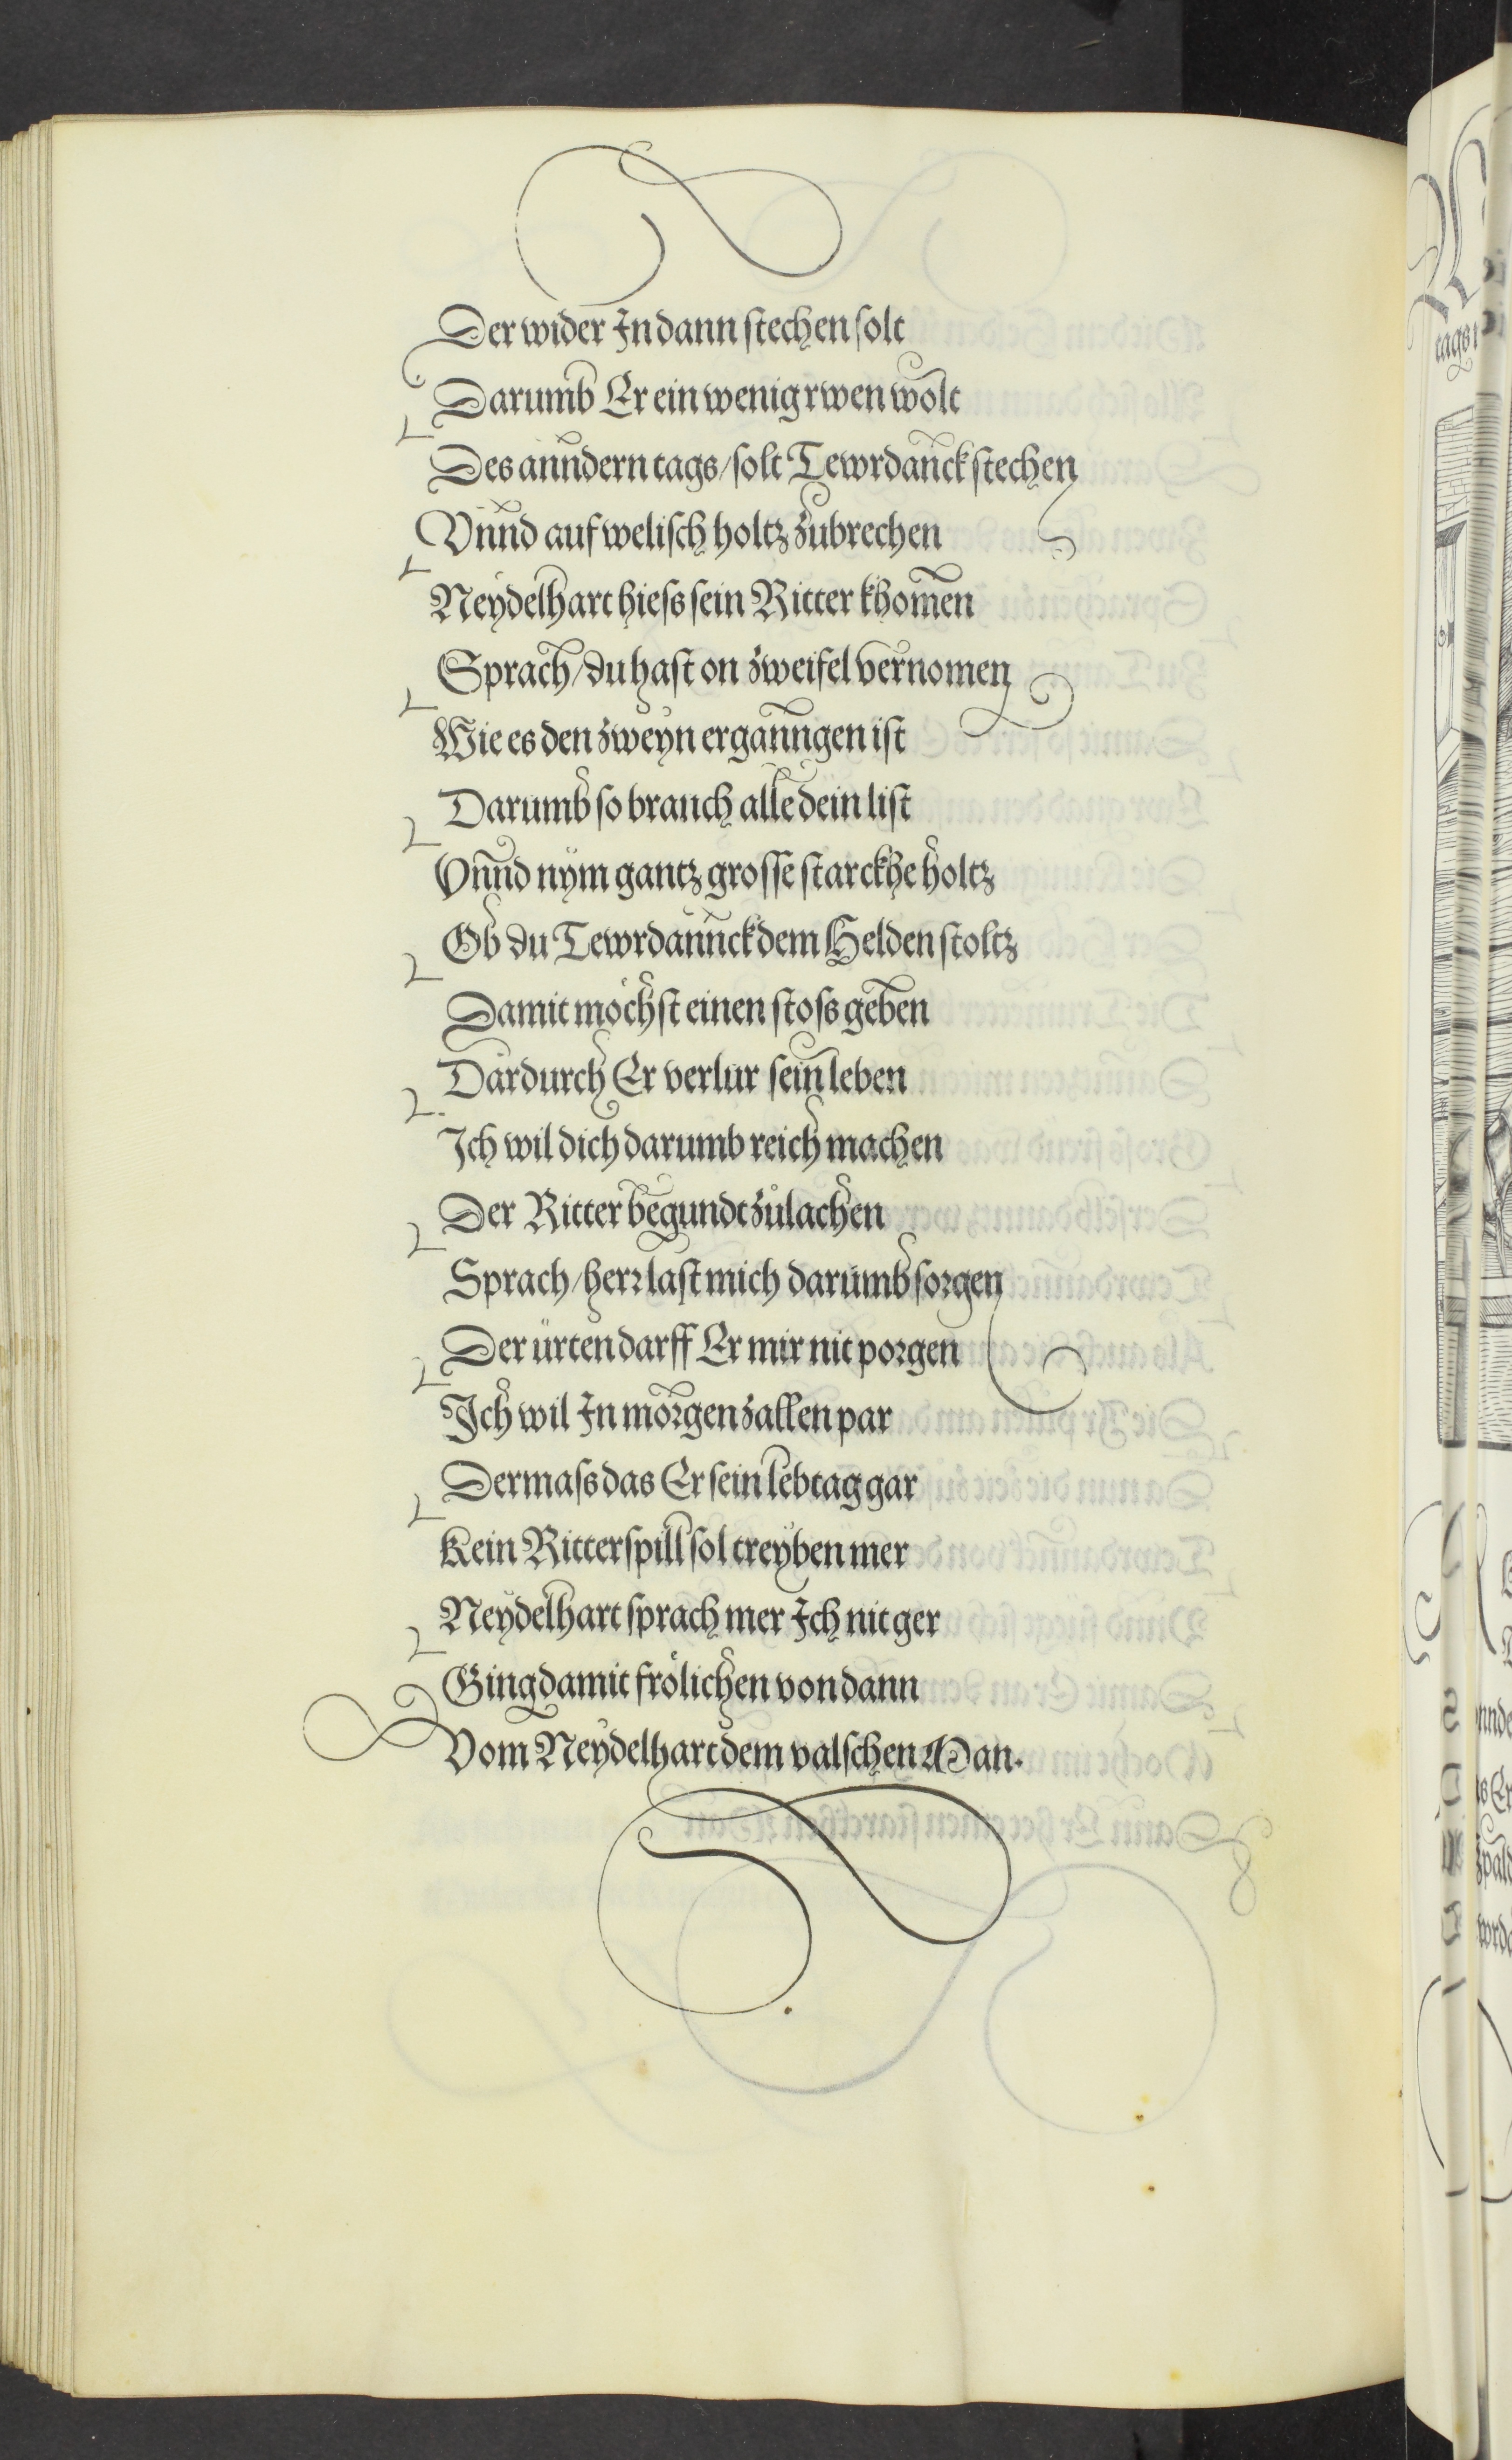 Der wider In dann stechen solt
Darumb Er ein wenig rwen wolt
Des anndern tags / solt Tewrdanck stechen
Vnnd auf welisch holtz zubrechen
Neydelhart hieſs ſein Ritter khomen
Sprach / du haſt on zweifel vernomen
Wie es den zweyn erganngen iſt
Darumb ſo brauch alle dein liſt
Vnnd nym gantz groſſe ſtarckhe holtz
Ob du Tewrdannck dem Helden ſtoltz
Damit möchſt einen ſtoſs geben
Dardurch Er verlur ſein leben
Ich wil dich darumb reich machen
Der Ritter begundt zůlachen
Sprach / herr laſt mich darumb ſorgen
Der ürten darff Er mir nit porgen
Ich wil In morgen zallen par
Dermaſs das Er ſein lebtag gar
Kein Ritterſpill ſol treyben mer
Neydelhart ſprach mer Ich nit ger
Ging damit frölichen von dann
Vom Neydelhart dem valſchen Man.